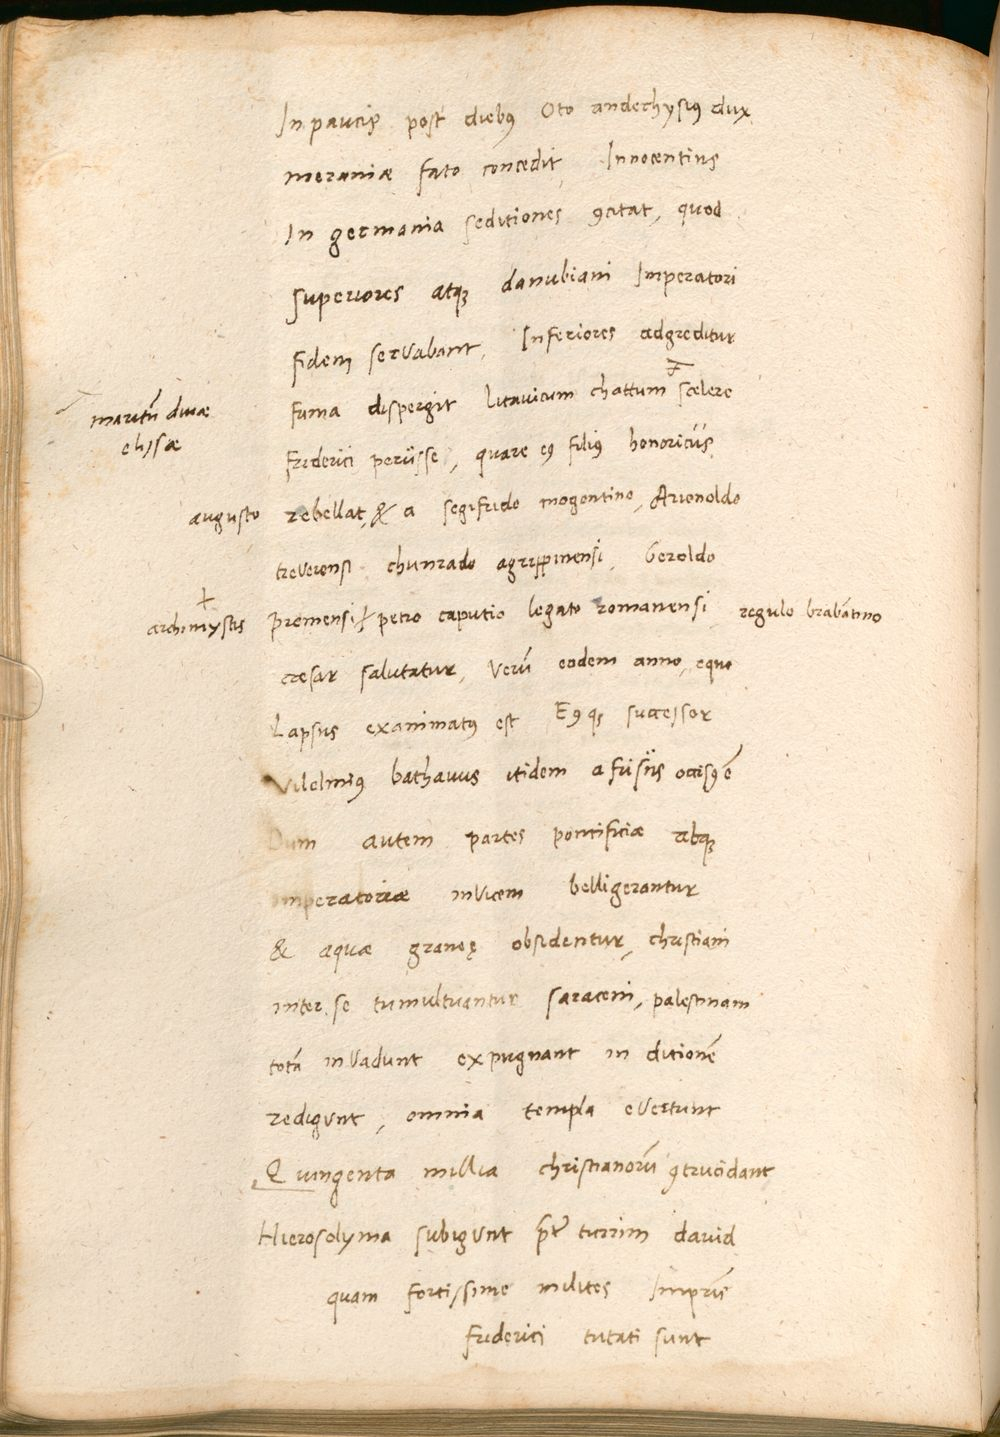 In paucis post diebꝯ Oto andechysiꝯ dux
meraniæ fato concedit, Innocentius
In germania seditiones ꝯcitat, quod
superiores atqꝫ danubiani Imperatori
fidem servabant, Inferiores adgreditur
fama dispergit litavicum chattum scelere
maritū divæ
elisæ
friderici periisse, quare eꝯ filiꝯ honoricus
augusto rebellat, & a segifrido mogontino, Arionoldo
treverensi chunrado agrippinensi, Geroldo
archimystis promensi petro caputio legato romanensi regulo brabātino
cæsar salutatur, Verū eodem anno, equo
Lapsus exanimatꝯ est Eꝯqꝫ successor
Vilelmiꝯ bathavus itidem a frisiis occisꝯ ē
Dum autem partes pontificiæ abqꝫ
imperatoriæ invicem belligerantur
& aquæ graneę obsidentur, christiani
inter se tumultuantur saraceni, palestinam
totā invadunt expugnant in ditionē
redigunt, omnia templa evertunt
Quingenta millia christianorū ꝯtrucidant
Hierosolyma subigunt p̄t turrim david
quam fortissime milites Impris̄
friderici tutati sunt